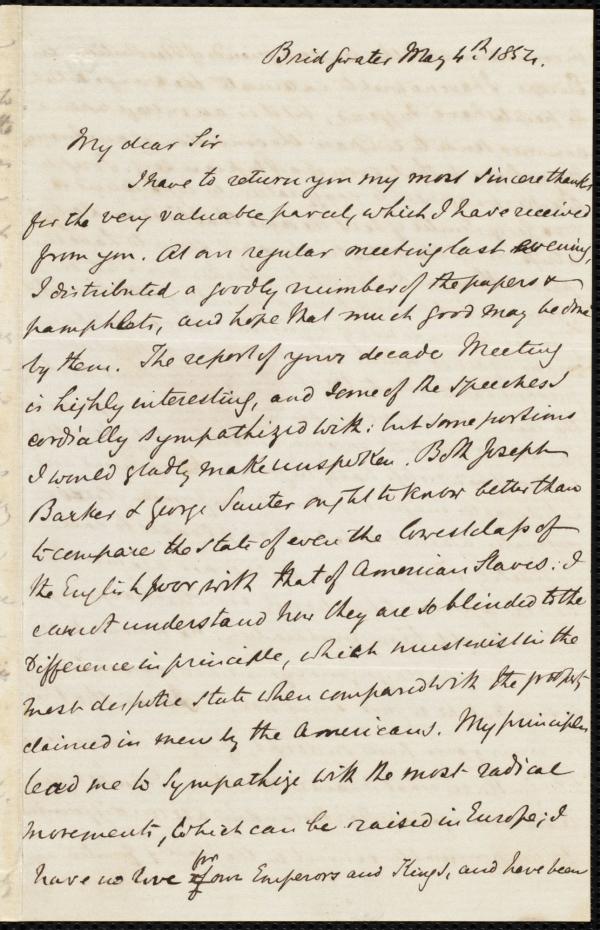 Bridgwater May 4th 1854.
My dear Sir
I have to return you my most sincere thanks
for the very valuable parcel, which I have received
from you. At our regular meeting last evening,
I distributed a goodly number of the papers &
pamphlets, and hope that much good may be done
by them. The report of your decade Meeting
is highly interesting, and some of the speeches I
cordially sympathized with: but some portions
I would gladly make unspoken. Both Joseph
Barker & George Sunter ought to know better than
to compare the state of even the lowest class of
the English poor with that of American Slaves: I
cannot understand how they are so blinded to the
difference in principle, which must exist in the
most despotic state when compared with the property
claimed in men by the Americans. My principles
lead me to sympathize with the most radical
movements, which can be raised in Europe; I
have no love for our Emperors and Kings, and have been